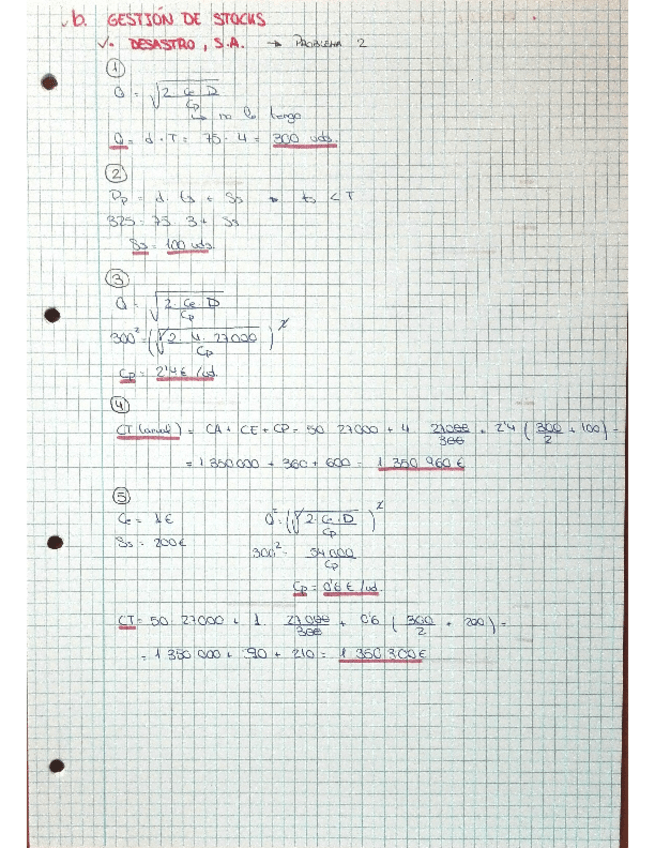 b. GESTIÓN DE STOCKS
DESASTRO, S.A. → PROBLEMA 2
①
Q = √(2 · Ce · D / Cp)
↳ no lo tengo
Q = d · T = 75 · 4 = 300 uds.
②
Pp = d · ts + Ss → ts < T
325 = 75 · 3 + Ss
Ss = 100 uds
③
Q = √(2 · Ce · D / Cp)
300² = (√(2 · 4 · 27000 / Cp))²
Cp = 2'4 € /ud.
④
CT (anual) = CA + CE + CP = 50 · 27000 + 4 · 27000/300 + 2'4 (300/2 + 100) =
= 1 350 000 + 360 + 600 = 1 350 960 €
⑤
Ce = 1 €
Q² = (√(2 · Ce · D / Cp))²
Ss = 200 €
300² = 54 000 / Cp
Cp = 0'6 € /ud.
CT = 50 · 27000 + 1 · 27 000/300 + 0'6 (300/2 + 200) =
= 1 350 000 + 90 + 210 = 1 350 300 €